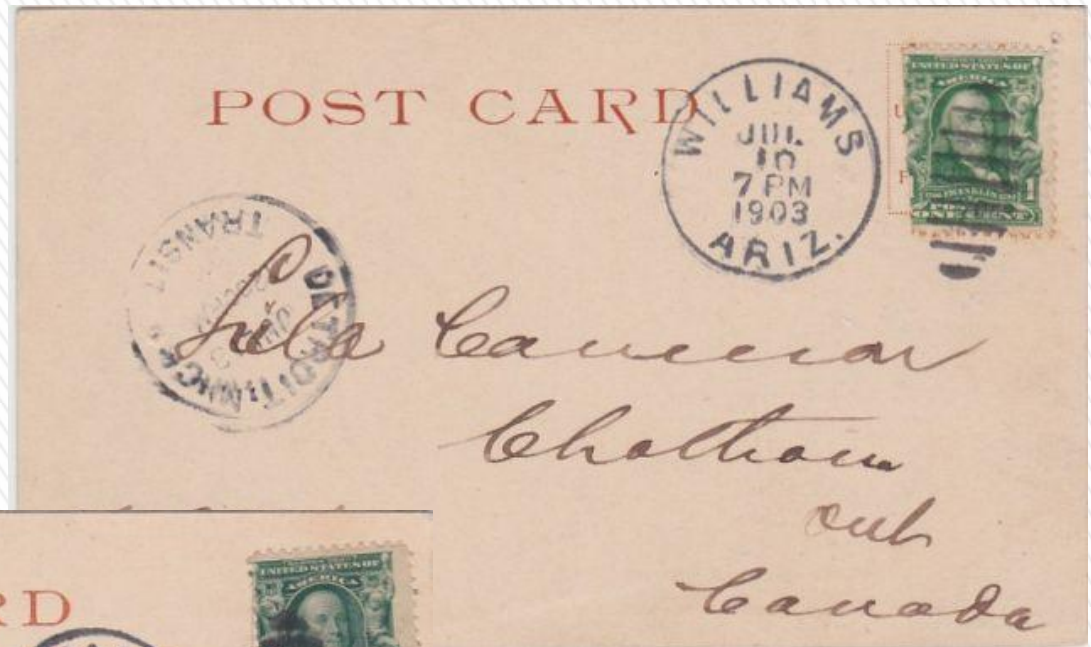 POST CARD
WILLIAMS
JUL.
10
7 PM
1903
ARIZ.
UNITED STATES OF
AMERICA
1
1
ONE CENT
DETROIT, MICH.
TRANSIT
Lila Cameron
Chatham
Ont
Canada
RD
UNITED STATES OF
AMERICA